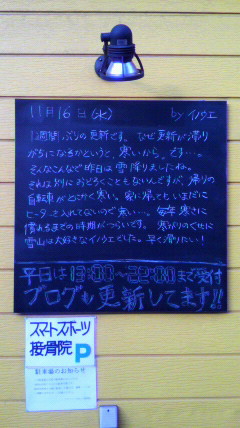 11月16日(火) byイノウエ
1週間ぶりの更新です。なぜ更新が滞り
がちになるかというと、寒いから。です…。
そんなこんなで昨日は雪降りましたね。
それは別におどろくこともないんですが、帰りの
自転車がとにかく寒い。家に帰ってもいまだに
ヒーターを入れてないので寒い…。毎年寒さに
慣れるまでの時期がつらいです。寒がりのくせに
雪山は大好きなイノウエでした。早く滑りたい!
平日は13:00〜22:00まで受付
ブログも更新してます!!
スマートスポーツ
接骨院 P
駐車場のお知らせ